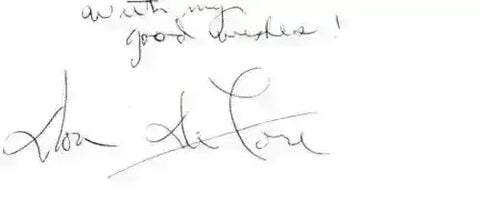 with my
good wishes!
Don De Fore